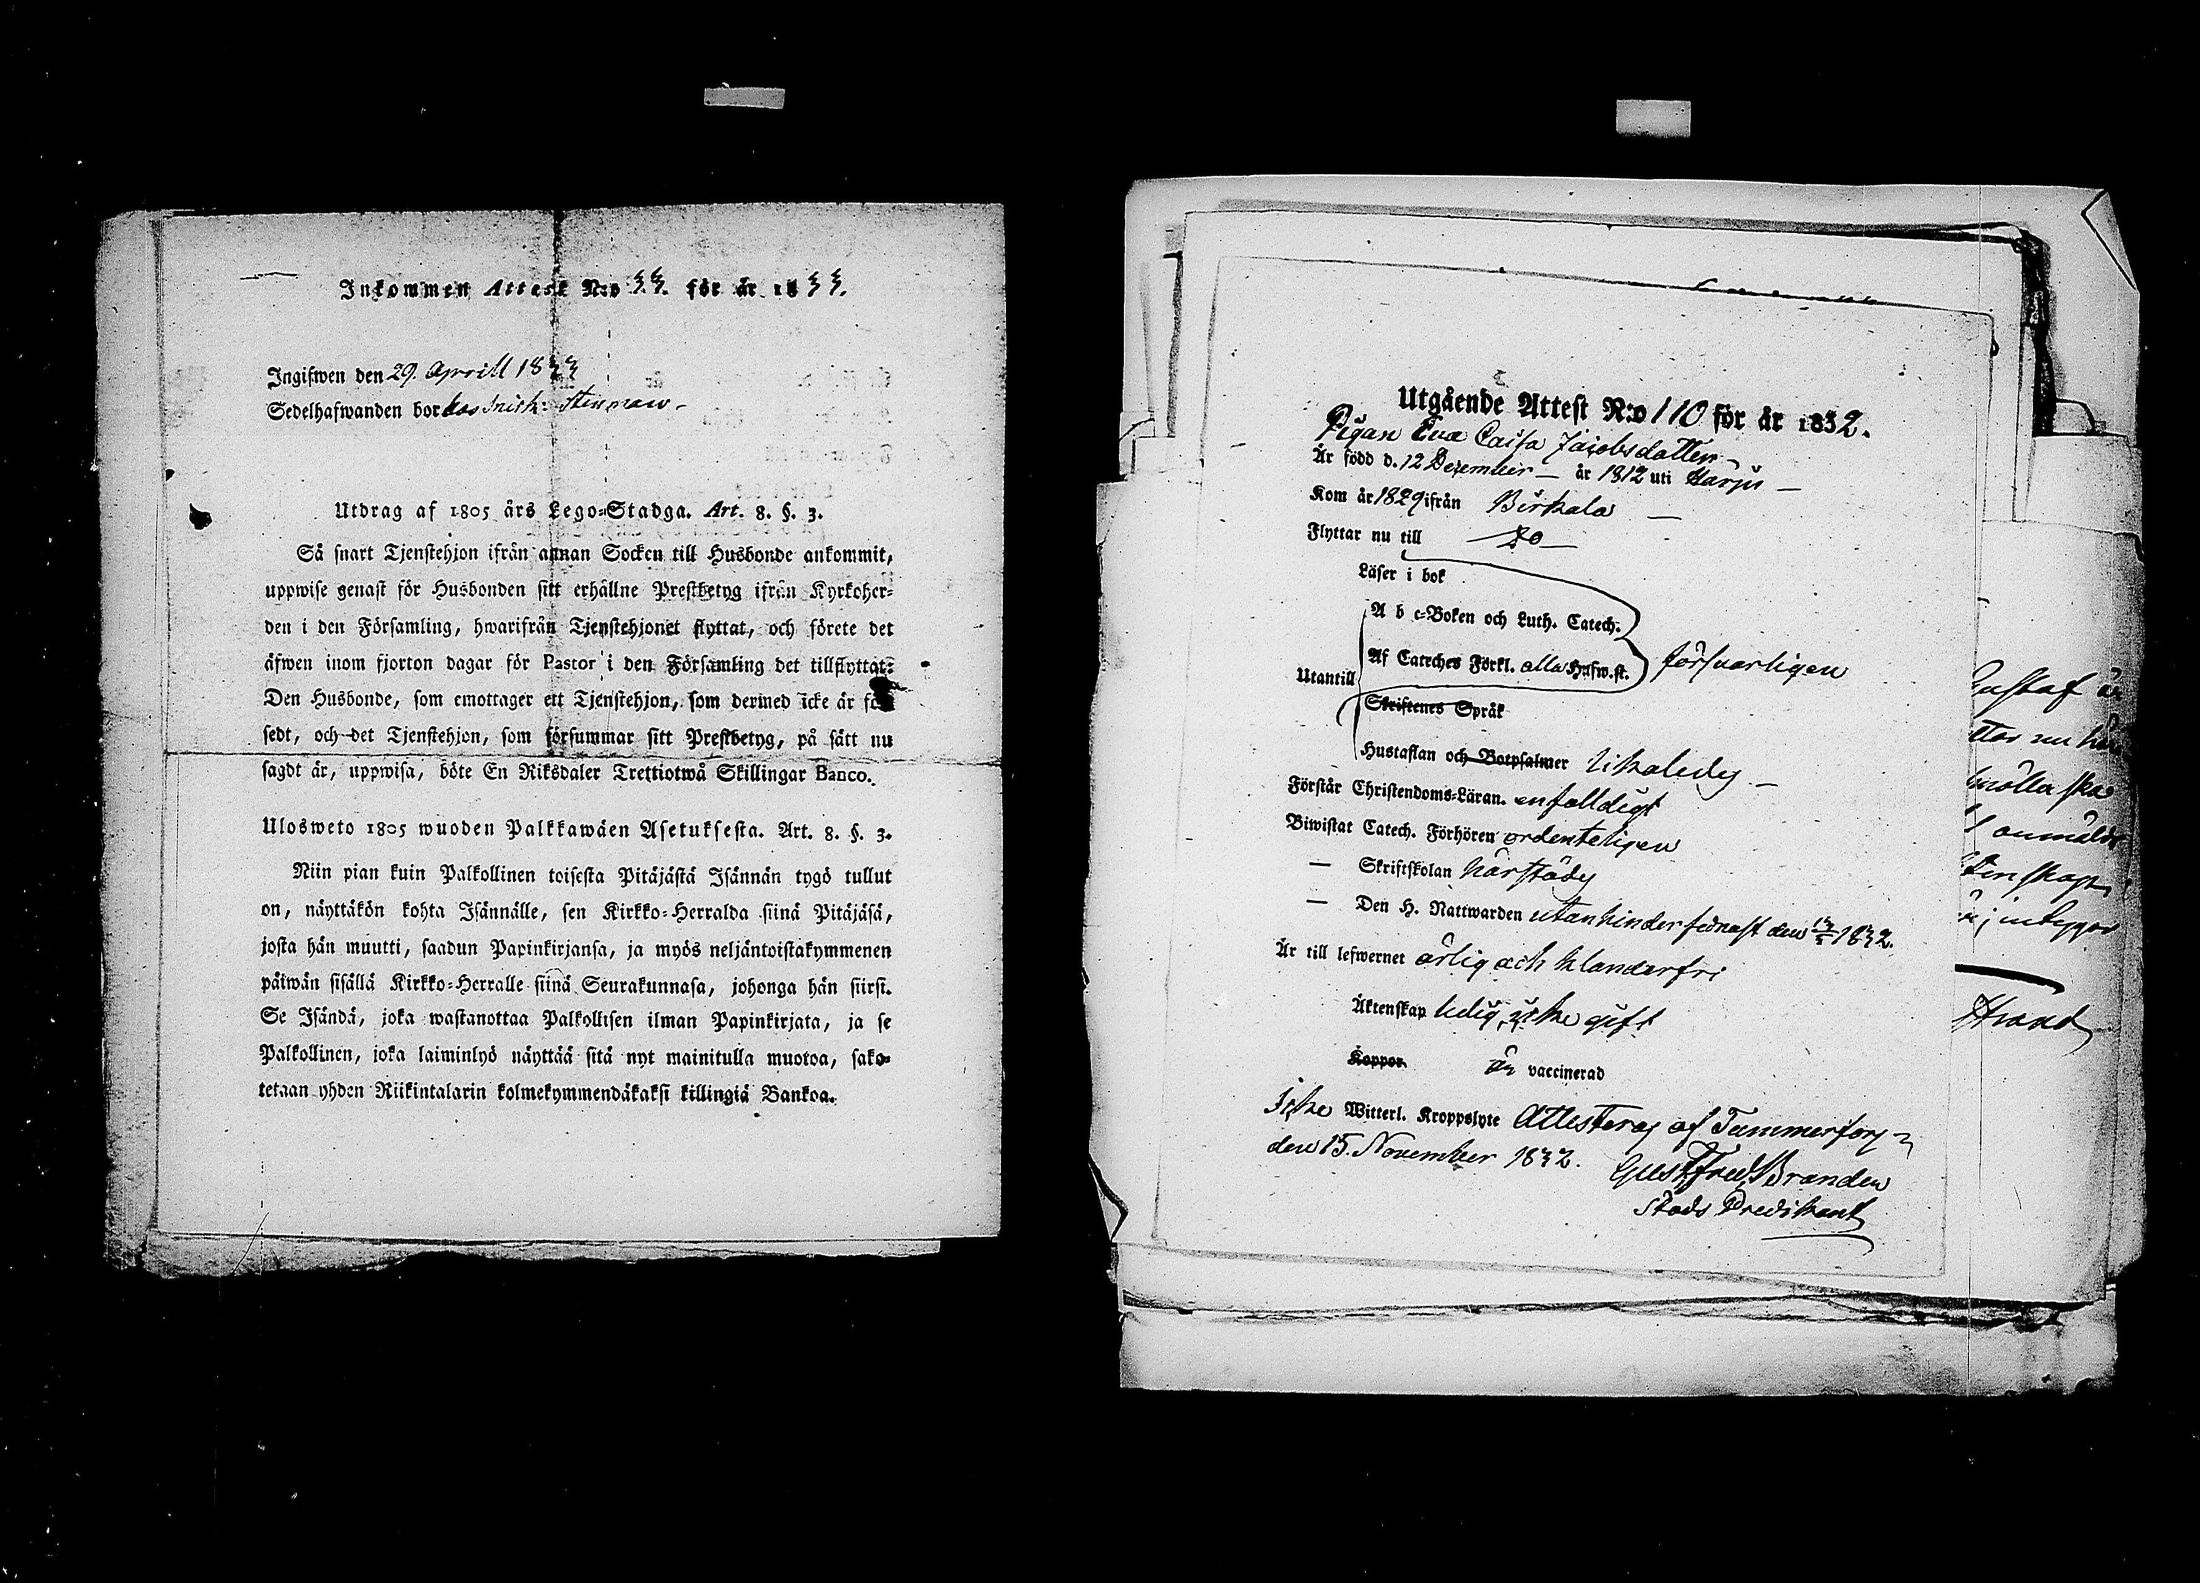 Inkommen Attest N:o 33. för år 1833.
Ingifwen den 29. Aprill 1833
Sedelhafwanden bor hos Snick: Stenman
Utdrag af 1805 års Lego-Stadga. Art. 8. §. 3.
Så snart Tjenstehjon ifrån annan Socken till Husbonde ankommit,
uppwise genast för Husbonden sitt erhållne Prestbetyg ifrån Kyrkoher-
den i den Församling, hwarifrån Tjenstehjonet flyttat, och förete det
äfwen inom fjorton dagar för Pastor i den Församling det tillflyttat.
Den Husbonde, som emottager ett Tjenstehjon, som dermed icke är för-
sedt, och det Tjenstehjon, som försummar sitt Prestbetyg, på sätt nu
sagdt är, uppwisa, böte En Riksdaler Trettiotwå Skillingar Banco.
Ulosweto 1805 wuoden Palkkawäen Asetuksesta. Art. 8. §. 3.
Niin pian kuin Palkollinen toisesta Pitäjästä Isännän tygö tullut
on, näyttäkön kohta Isännälle, sen Kirkko-Herralda siinä Pitäjäsä,
josta hän muutti, saadun Papinkirjansa, ja myös neljäntoistakymmenen
päiwän sisällä Kirkko-Herralle siinä Seurakunnasa, johonga hän siirsi.
Se Isändä, joka wastanottaa Palkollisen ilman Papinkirjata, ja se
Palkollinen, joka laiminlyö näyttää sitä nyt mainitulla muotoa, sako-
tetaan yhden Riikintalarin kolmekymmendäkaksi killingiä Bankoa.
Utgående Attest N:o 110 för år 1832.
Pigan Eva Caisa Jacobsdotter
Är född d. 12 December — år 1812 uti Harju —
Kom år 1829 ifrån Birkala —
Flyttar nu till — Do —
Läser i bok
A b c-Boken och Luth. Catech.
Af Cateches Förkl. alla Hufw.st. försvarligen
Utantill
Skriftenes Språk
Hustaflan och Botpsalmer likaledes —
Förstår Christendoms-Läran. enfalldigt
Biwistat Catech. Förhören ordenteligen
— Skriftskolan härstädes
— Den H. Nattwarden utan hinder senast den 1832.
Är till lefwernet ärlig och klanderfri
Äktenskap ledig, icke gift
Koppor är vaccinerad
Icke Witterl. Kroppslyte Attesteras af Tammerfors
den 15. November 1832.
Gust. Fred. Brander
Stads Predikant
Gustaf är